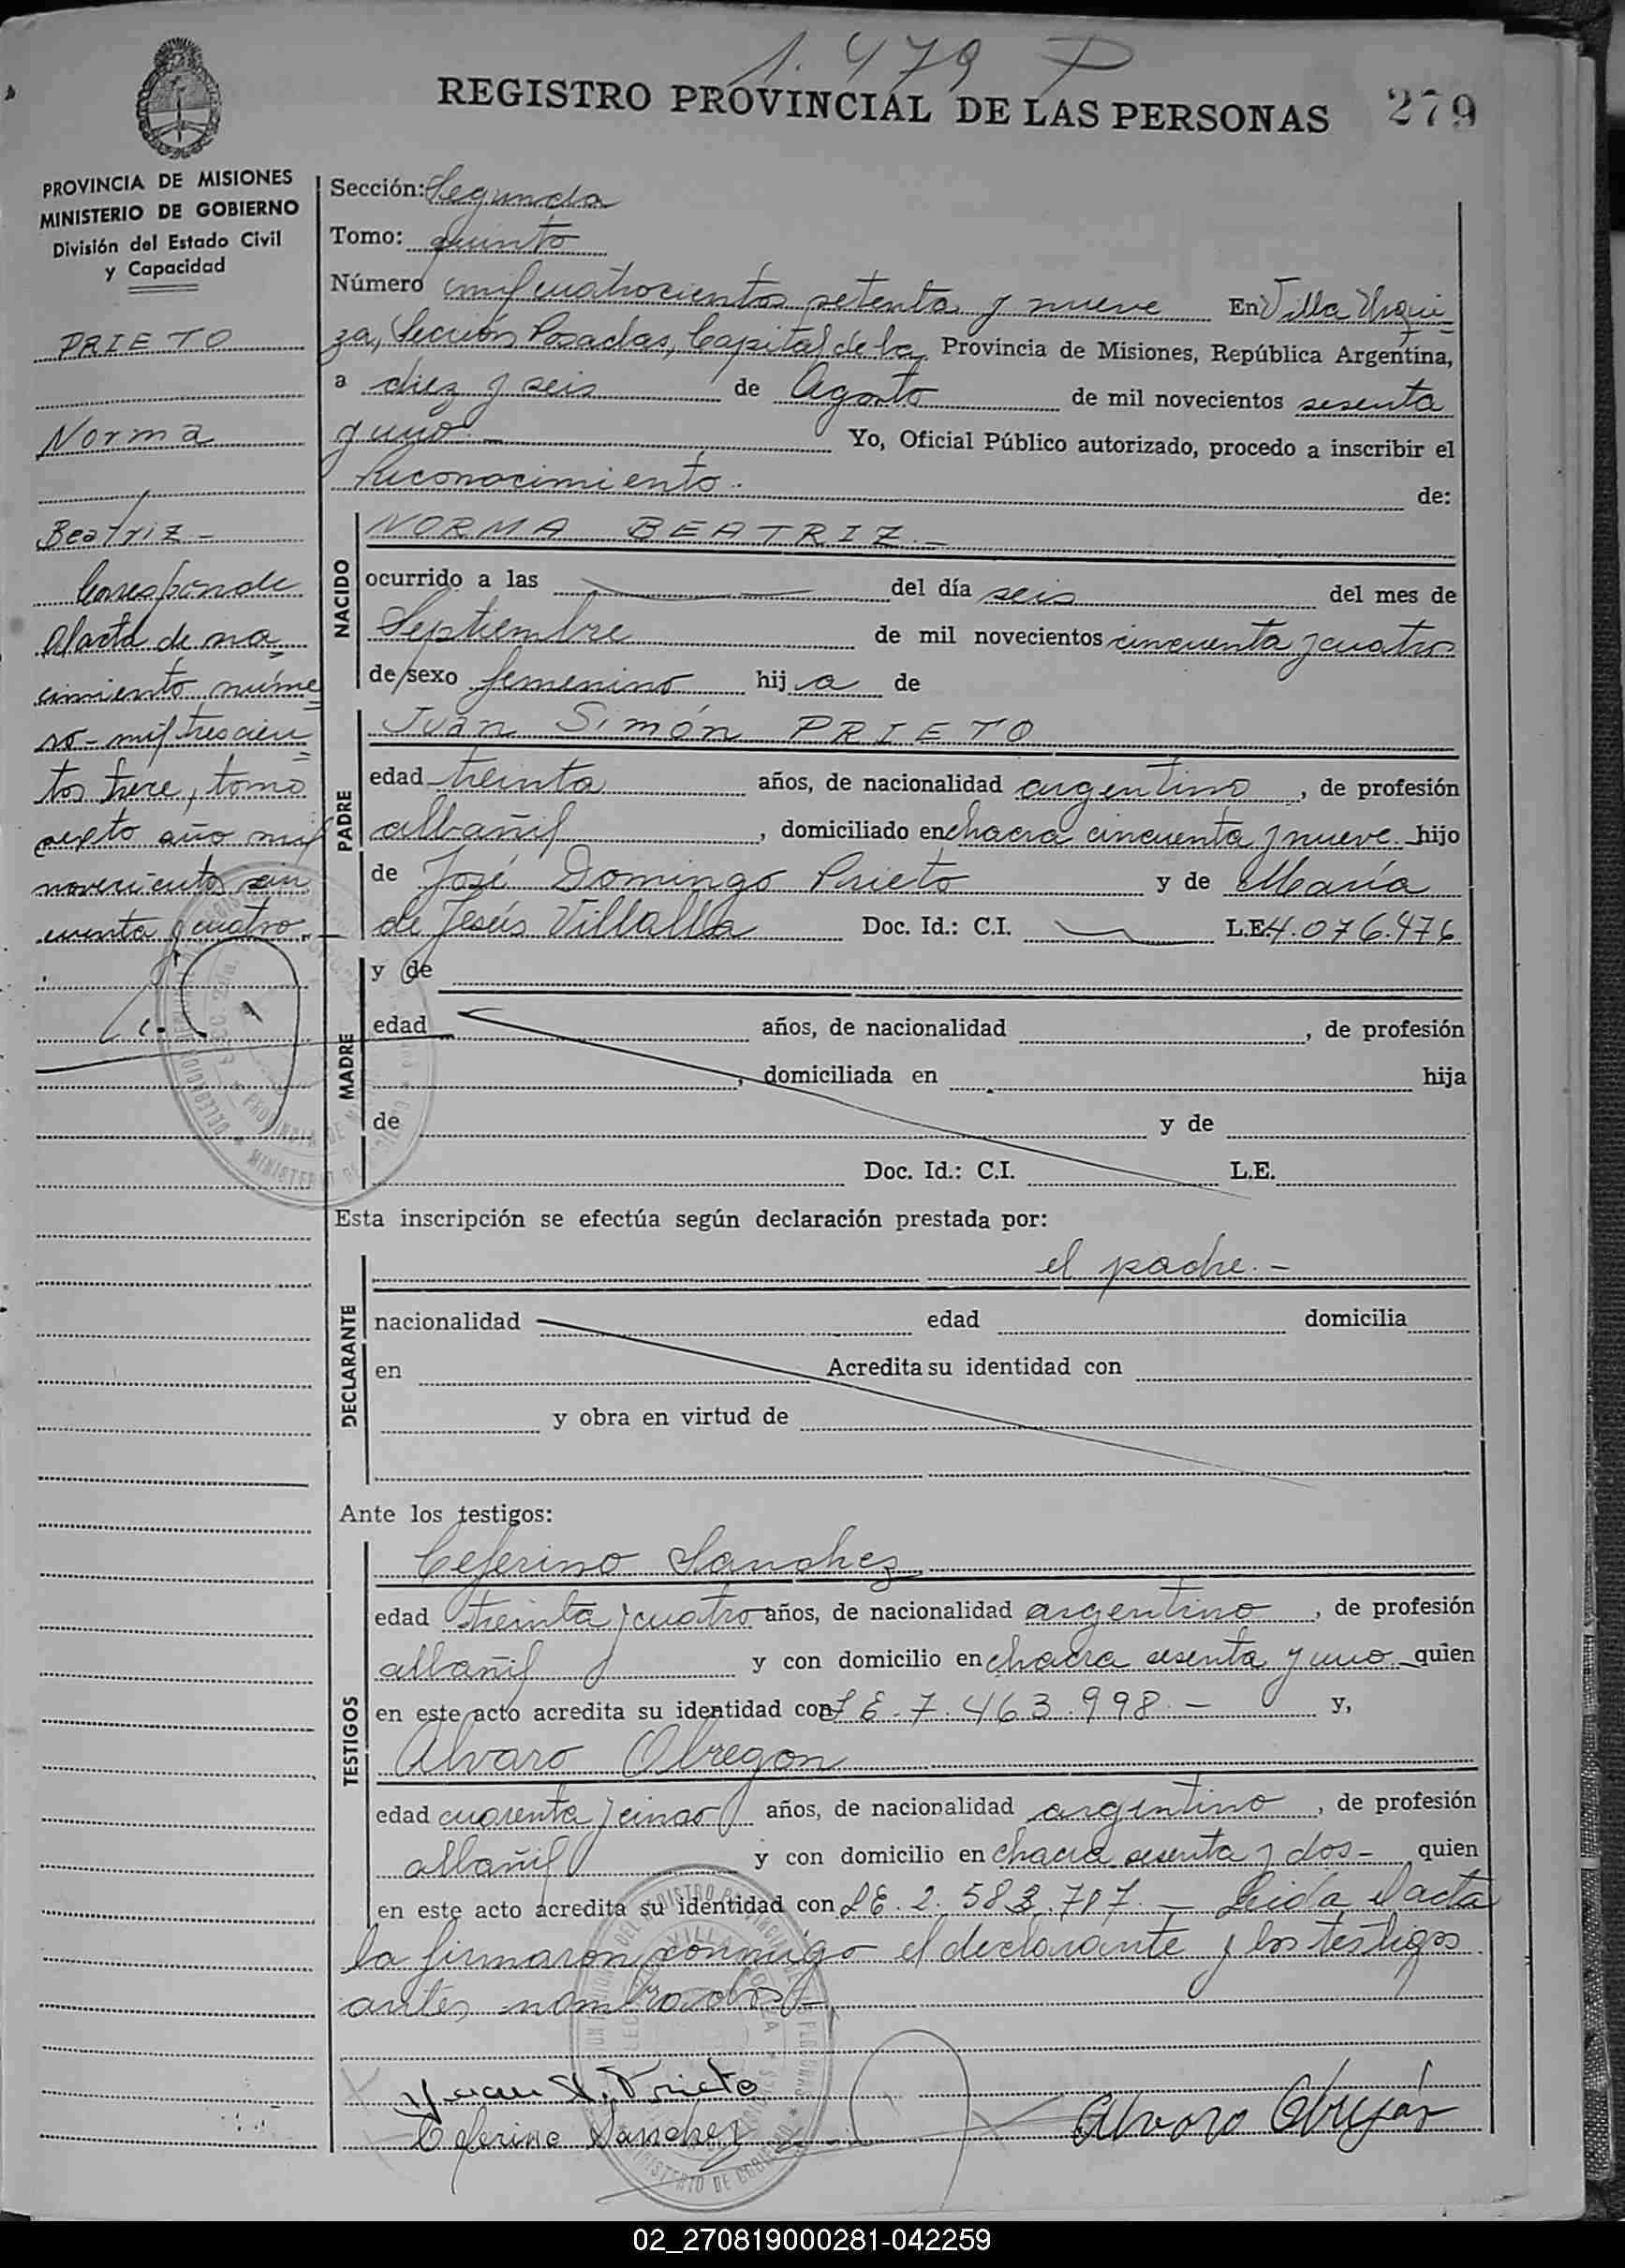 1.479 P
REGISTRO PROVINCIAL DE LAS PERSONAS 279
PROVINCIA DE MISIONES
MINISTERIO DE GOBIERNO
División del Estado Civil
y Capacidad
PRIETO
Norma
Beatriz -
Corresponde
al acta de na=
cimiento núme=
ro - mil trescien=
tos trece, tomo
sexto año mil
novecientos cin
cuenta y cuatro. -
Sección: Segunda
Tomo: quinto
Número mil cuatrocientos setenta y nueve En Villa Urqui=
za, Sección Posadas, Capital de la Provincia de Misiones, República Argentina,
a diez y seis de Agosto de mil novecientos sesenta
y uno. - Yo, Oficial Público autorizado, procedo a inscribir el
Reconocimiento. de:
NACIDO
NORMA BEATRIZ. -
ocurrido a las del día seis del mes de
Septiembre de mil novecientos cincuenta y cuatro
de sexo femenino hija de
PADRE
Juan Simón PRIETO
edad treinta años, de nacionalidad argentino, de profesión
albañil, domiciliado en chacra cincuenta y nueve. hijo
de José Domingo Prieto y de María
de Jesús Villalba Doc. Id.: C.I. L.E. 4.076.476
MADRE
y de
edad años, de nacionalidad , de profesión
, domiciliada en hija
de y de
Doc. Id.: C.I. L.E.
Esta inscripción se efectúa según declaración prestada por:
DECLARANTE
el padre. -
nacionalidad edad domicilia
en Acredita su identidad con
y obra en virtud de
Ante los testigos:
TESTIGOS
Ceferino Sanchez
edad treinta y cuatro años, de nacionalidad argentino, de profesión
albañil y con domicilio en chacra sesenta y uno quien
en este acto acredita su identidad con LE. 7.463.998. - y,
Alvaro Obregon
edad cuarenta y cinco años, de nacionalidad argentino, de profesión
albañil y con domicilio en chacra sesenta y dos - quien
en este acto acredita su identidad con LE. 2.583.717. - Leida el acta
la firmaron conmigo el declarante y los testigos
antes nombrados. -
Juan S. Prieto
Ceferino Sanchez
Alvaro Obregón
02_270819000281-042259